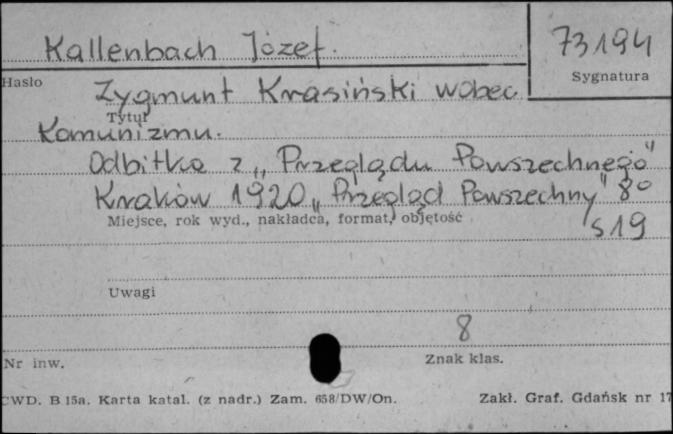 Kallenbach Józef.
73194
Hasło
Sygnatura
Zygmunt Krasiński wobec
Tytuł
Komunizmu.
Odbitka z „Przeglądu Powszechnego"
Kraków 1920 „Przegląd Powszechny" 8°
Miejsce, rok wyd., nakładca, format, objętość
s 19
Uwagi
8
Nr inw.
Znak klas.
CWD. B 15a. Karta katal. (z nadr.) Zam. 658/DW/On.
Zakł. Graf. Gdańsk nr 17